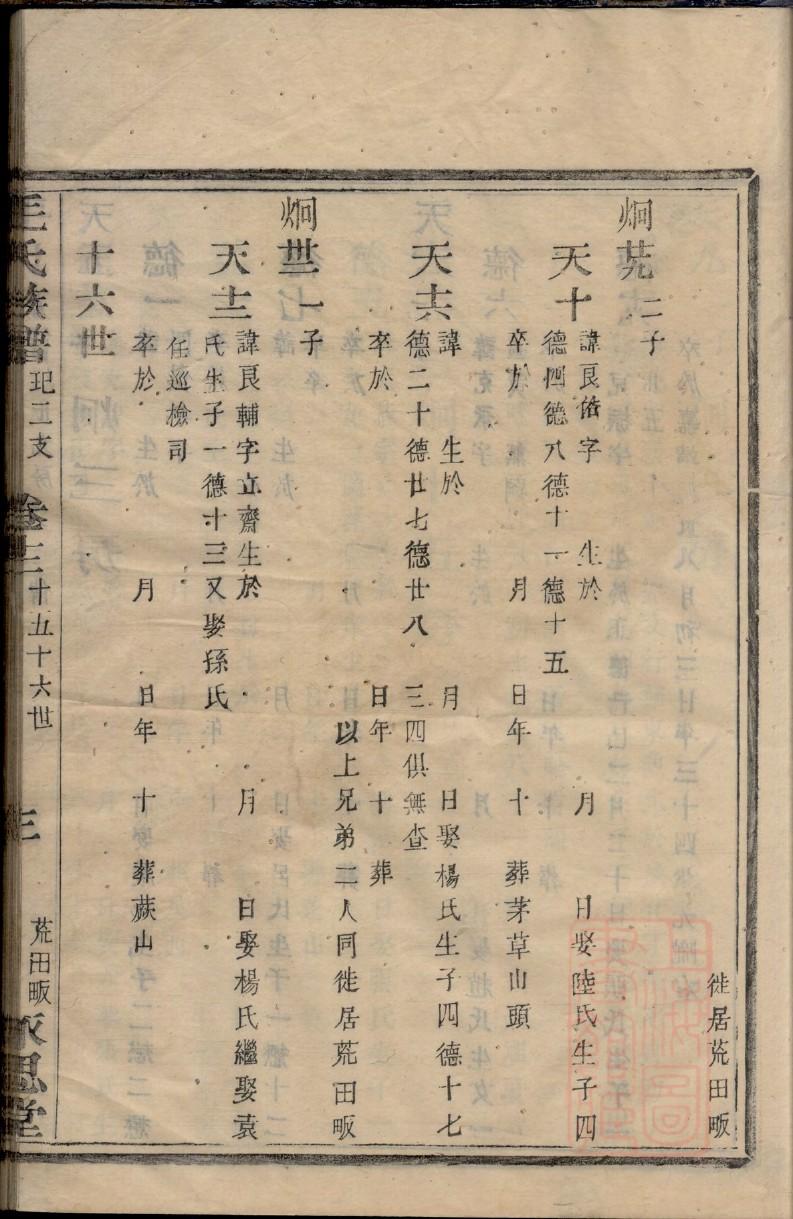 徙居荒田畈
炯茺二子
天十 諱良佐字 生於 月 日娶陸氏生子四
德四德八德十一德十五
卒於 月 日年 十 葬茅草山頭
天六 諱 生於 月 日娶楊氏生子四德十七
德二十德廿七德廿八 三四俱無查
卒於 日年 十 葬
以上兄弟二人同徙居荒田畈
炯卋一子
天十三 諱良輔字立齋生於 月 日娶楊氏繼娶袁
氏生子一德十三又娶孫氏
任巡檢司
卒於 月 日年 十 葬蕨山
十六世
王氏族譜 玘二支 卷 十五十六世 荒田畈 永思堂